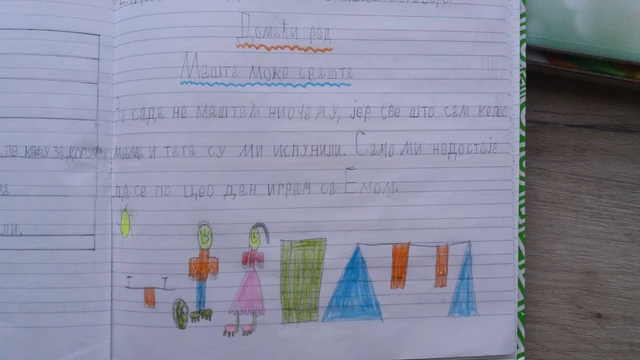 Домаћи рад
Машта може свашта
За сада не маштам ниочему, јер све што сам желео
мама и тата су ми испунили. Само ми недостаје
да се по цео дан играм са Емом.
ли.